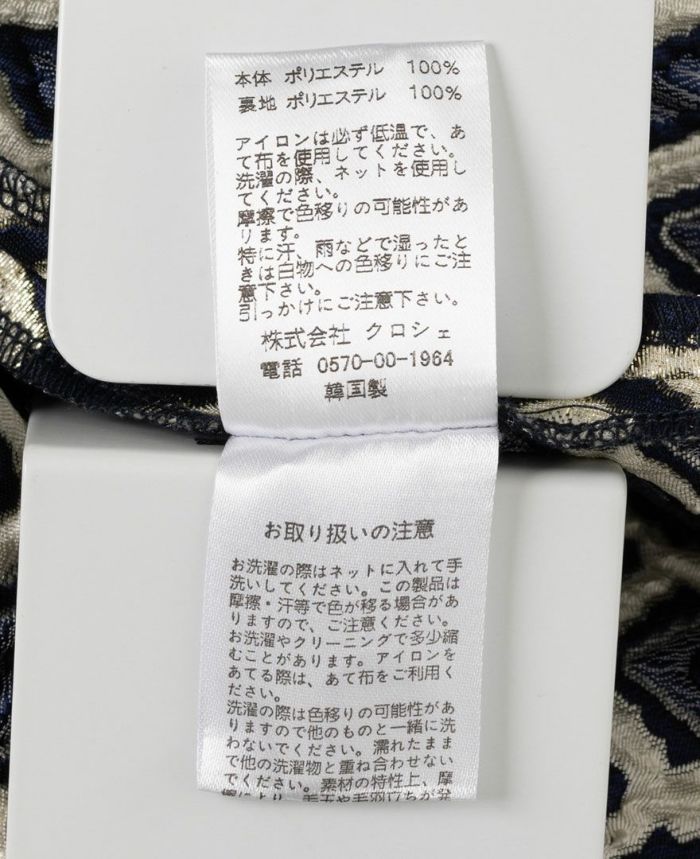 本体 ポリエステル 100%
裏地 ポリエステル 100%
アイロンは必ず低温で、あ
て布を使用してください。
洗濯の際、ネットを使用し
てください。
摩擦で色移りの可能性があ
ります。
特に汗、雨などで湿ったと
きは白物への色移りにご注
意下さい。
引っかけにご注意下さい。
株式会社 クロシェ
電話 0570-00-1964
韓国製
お取り扱いの注意
お洗濯の際はネットに入れて手
洗いしてください。この製品は
摩擦・汗等で色が移る場合があ
りますので、ご注意ください。
お洗濯やクリーニングで多少縮
むことがあります。アイロンを
あてる際は、あて布をご利用く
ださい。
洗濯の際は色移りの可能性があ
りますので他のものと一緒に洗
わないでください。濡れたまま
で他の洗濯物と重ね合わせない
でください。素材の特性上、摩
擦により、毛玉や毛羽立ちが発